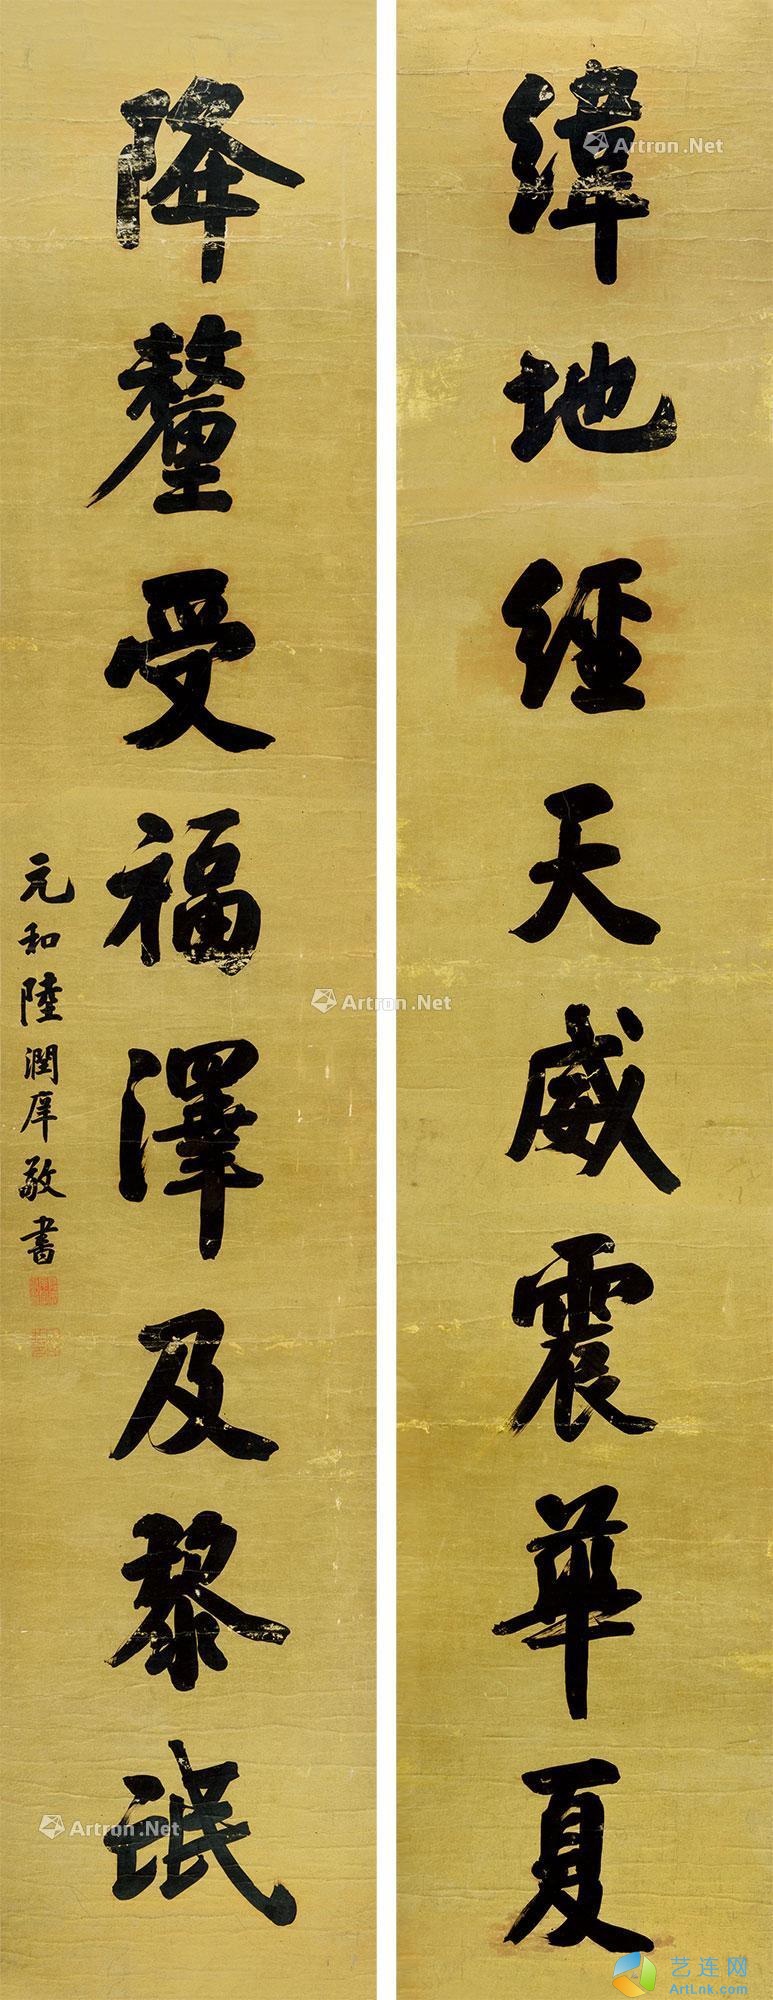 緯地經天威震華夏
降釐受福澤及黎氓
元和陸潤庠敬書
Artron.Net
Artron.Net
Artron.Net
艺连网
ArtLnk.com